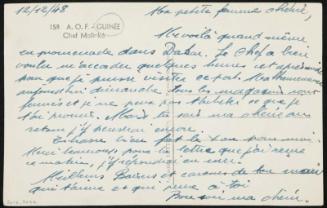 12/12/48
158 A. O. F. - GUINÉE
Chef Malinké
Ma petite femme chérie,
Me voilà quand même
en promenade dans Dakar. Le Chef a bien
voulu m'accorder quelques heures et
pour que je puisse visiter ce
aujourd'hui dimanche, tous les magasins sont
fermés et je ne peux pas t'acheter ce que je
t'ai promis. Mais tu sais ma chérie au
retour j'y penserai encore.
bien fait le bon pour moi.
Merci beaucoup pour la lettre que j'ai reçue
ce matin, j'y répondrai en mer.
Meilleurs Baisers et caresses de ton mari
qui t'aime et qui pense à toi
Bonsoir ma chérie.